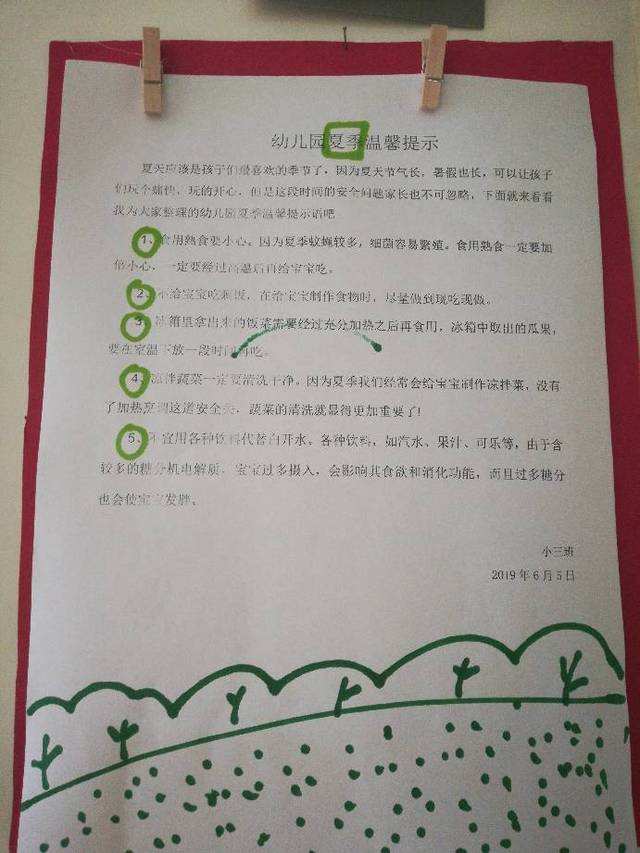 幼儿园夏季温馨提示
夏天应该是孩子们最喜欢的季节了，因为夏天节气长，暑假也长，可以让孩子
们玩个痛快，玩的开心，但是这段时间的安全问题家长也不可忽略，下面就来看看
我为大家整理的幼儿园夏季温馨提示语吧
1、食用熟食要小心。因为夏季蚊蝇较多，细菌容易繁殖。食用熟食一定要加
倍小心，一定要经过高温后再给宝宝吃。
2、不给宝宝吃剩饭，在给宝宝制作食物时，尽量做到现吃现做。
3、冰箱里拿出来的饭菜需要经过充分加热之后再食用，冰箱中取出的瓜果，
要在室温下放一段时间再吃。
4、凉拌蔬菜一定要清洗干净。因为夏季我们经常会给宝宝制作凉拌菜，没有
了加热烹调这道安全关，蔬菜的清洗就显得更加重要了!
5、不宜用各种饮料代替白开水。各种饮料，如汽水、果汁、可乐等，由于含
较多的糖分机电解质，宝宝过多摄入，会影响其食欲和消化功能，而且过多糖分
也会使宝宝发胖、
小三班
2019年6月5日